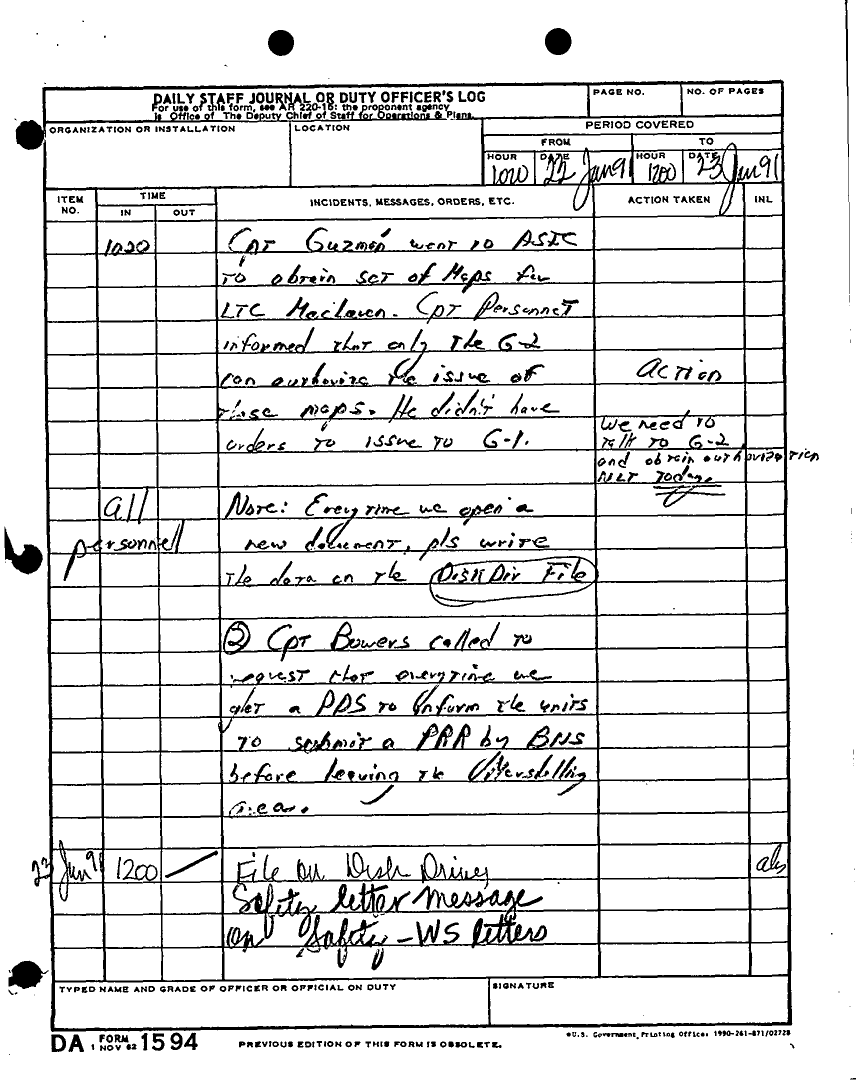 DAILY STAFF JOURNAL OR DUTY OFFICER'S LOG
For use of this form, see AR 220-15: the proponent agency
is Office of The Deputy Chief of Staff for Operations & Plans.
PAGE NO.
NO. OF PAGES
ORGANIZATION OR INSTALLATION
LOCATION
PERIOD COVERED
FROM
TO
HOUR
DATE
HOUR
DATE
1020
22 Jan 91
1200
23 Jan 91
ITEM NO.
TIME
IN
OUT
INCIDENTS, MESSAGES, ORDERS, ETC.
ACTION TAKEN
INL
1020
CPT Guzmán went to ASIC
to obtain set of Maps for
LTC Maclaren. CPT Personnet
informed that only the G-2
can authorize the issue of
these maps. He didn't have
orders to issue to G-1.
Action
We need to
talk to G-2
and obtain authorization
NLT Today.
all
personnell
Note: Everytime we open a
new document, pls write
the data on the DiskDir File
② Cpt Bowers called to
request that everytime we
get a PDS to inform the units
to submit a PRR by BNS
before leaving the
area.
23 Jan 91
1200
File on Disk Drives
Safety letter message
on Safety - WS letters
TYPED NAME AND GRADE OF OFFICER OR OFFICIAL ON DUTY
SIGNATURE
DA FORM 1 NOV 62 1594
PREVIOUS EDITION OF THIS FORM IS OBSOLETE.
U.S. Government Printing Office: 1990-261-871/02728